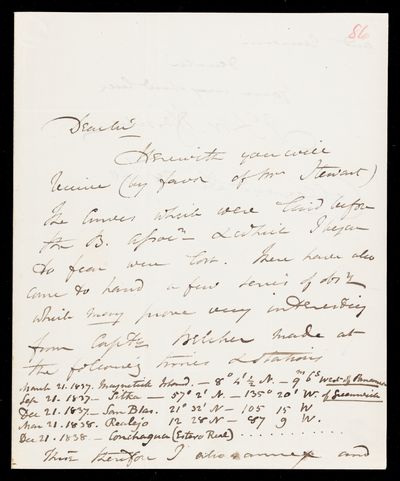 86
Dear Sir
Herewith you will
receive (by favor of Mr Stewart)
the Curves which were laid before
the B. Assocn & which I began
to fear were lost. There have also
come to hand a few series of obsns
which many prove very interesting
from Captn Belcher made at
the following times & stations
March 21. 1837. Magnetick Island. — 8° 4' ½ N. — 9m 6s West of Panama
Sep 21. 1837 — Sitka — 57° 2' N. — 135° 20' W. of Greenwich
Dec 21. 1837 — San Blas. 21° 32' N — 105 15 W
Mar 21. 1838. Realejo 12 28 N — 87 9 W.
Dec 21. 1838 — Conchagua (Estero Real) . . . . . . . . . . .
These therefore I also annex and